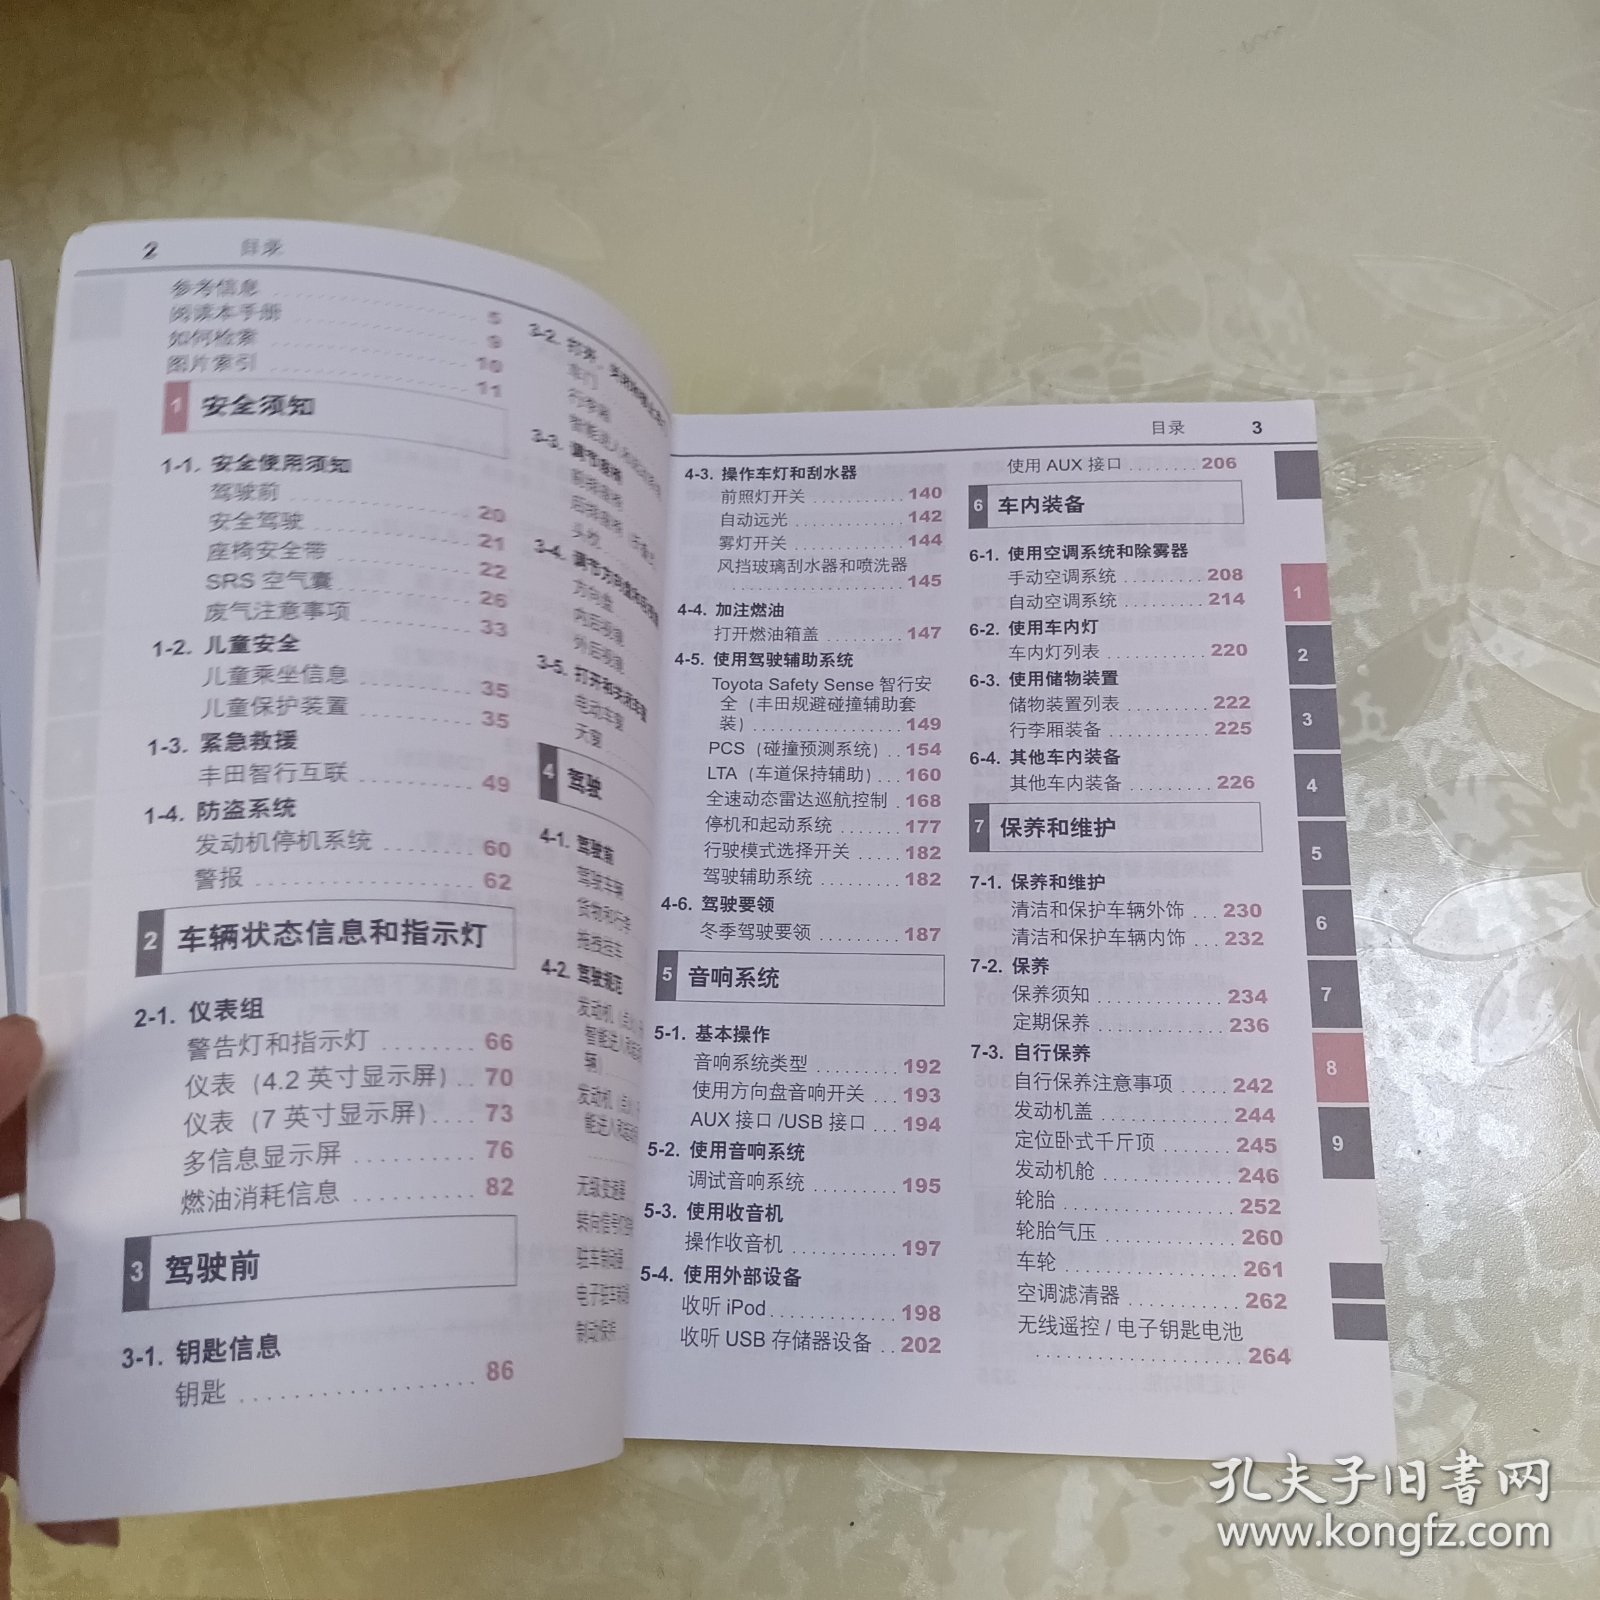 2 目录
参考信息 5
阅读本手册 9
如何检索 10
图片索引 11
1 安全须知
1-1. 安全使用须知
驾驶前 20
安全驾驶 21
座椅安全带 22
SRS 空气囊 26
废气注意事项 33
1-2. 儿童安全
儿童乘坐信息 35
儿童保护装置 35
1-3. 紧急救援
丰田智行互联 49
1-4. 防盗系统
发动机停机系统 60
警报 62
2 车辆状态信息和指示灯
2-1. 仪表组
警告灯和指示灯 66
仪表（4.2 英寸显示屏） 70
仪表（7 英寸显示屏） 73
多信息显示屏 76
燃油消耗信息 82
3 驾驶前
3-1. 钥匙信息
钥匙 86
3-2. 打开、
车门
行李厢
3-3. 调节座椅
前排座椅
后排座椅
头枕
3-4. 调节方向盘和后视镜
方向盘
内后视镜
外后视镜
3-5. 打开和关闭车窗
电动车窗
天窗
4 驾驶
4-1. 驾驶前
驾驶车辆
货物和行李
拖拽挂车
4-2. 驾驶规范
发动机
智能进
辆）
发动机
能进入和起动
无级变速器
转向信号灯控制
驻车制动器
电子驻车制动
制动保持
目录 3
4-3. 操作车灯和刮水器
前照灯开关 140
自动远光 142
雾灯开关 144
风挡玻璃刮水器和喷洗器
145
4-4. 加注燃油
打开燃油箱盖 147
4-5. 使用驾驶辅助系统
Toyota Safety Sense 智行安
全（丰田规避碰撞辅助套
装） 149
PCS（碰撞预测系统） 154
LTA（车道保持辅助） 160
全速动态雷达巡航控制 168
停机和起动系统 177
行驶模式选择开关 182
驾驶辅助系统 182
4-6. 驾驶要领
冬季驾驶要领 187
5 音响系统
5-1. 基本操作
音响系统类型 192
使用方向盘音响开关 193
AUX 接口 /USB 接口 194
5-2. 使用音响系统
调试音响系统 195
5-3. 使用收音机
操作收音机 197
5-4. 使用外部设备
收听 iPod 198
收听 USB 存储器设备 202
使用 AUX 接口 206
6 车内装备
6-1. 使用空调系统和除雾器
手动空调系统 208
自动空调系统 214
6-2. 使用车内灯
车内灯列表 220
6-3. 使用储物装置
储物装置列表 222
行李厢装备 225
6-4. 其他车内装备
其他车内装备 226
7 保养和维护
7-1. 保养和维护
清洁和保护车辆外饰 230
清洁和保护车辆内饰 232
7-2. 保养
保养须知 234
定期保养 236
7-3. 自行保养
自行保养注意事项 242
发动机盖 244
定位卧式千斤顶 245
发动机舱 246
轮胎 252
轮胎气压 260
车轮 261
空调滤清器 262
无线遥控 / 电子钥匙电池
264
1
2
3
4
5
6
7
8
9
孔夫子旧书网
www.kongfz.com